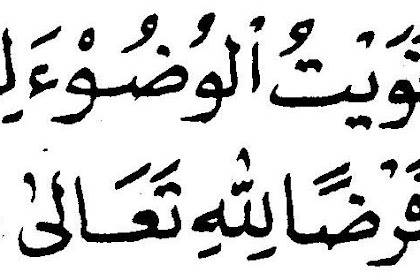 نَوَيْتُ الْوُضُوْءَ لِ
فَرْضًا لِلّٰهِ تَعَالٰى